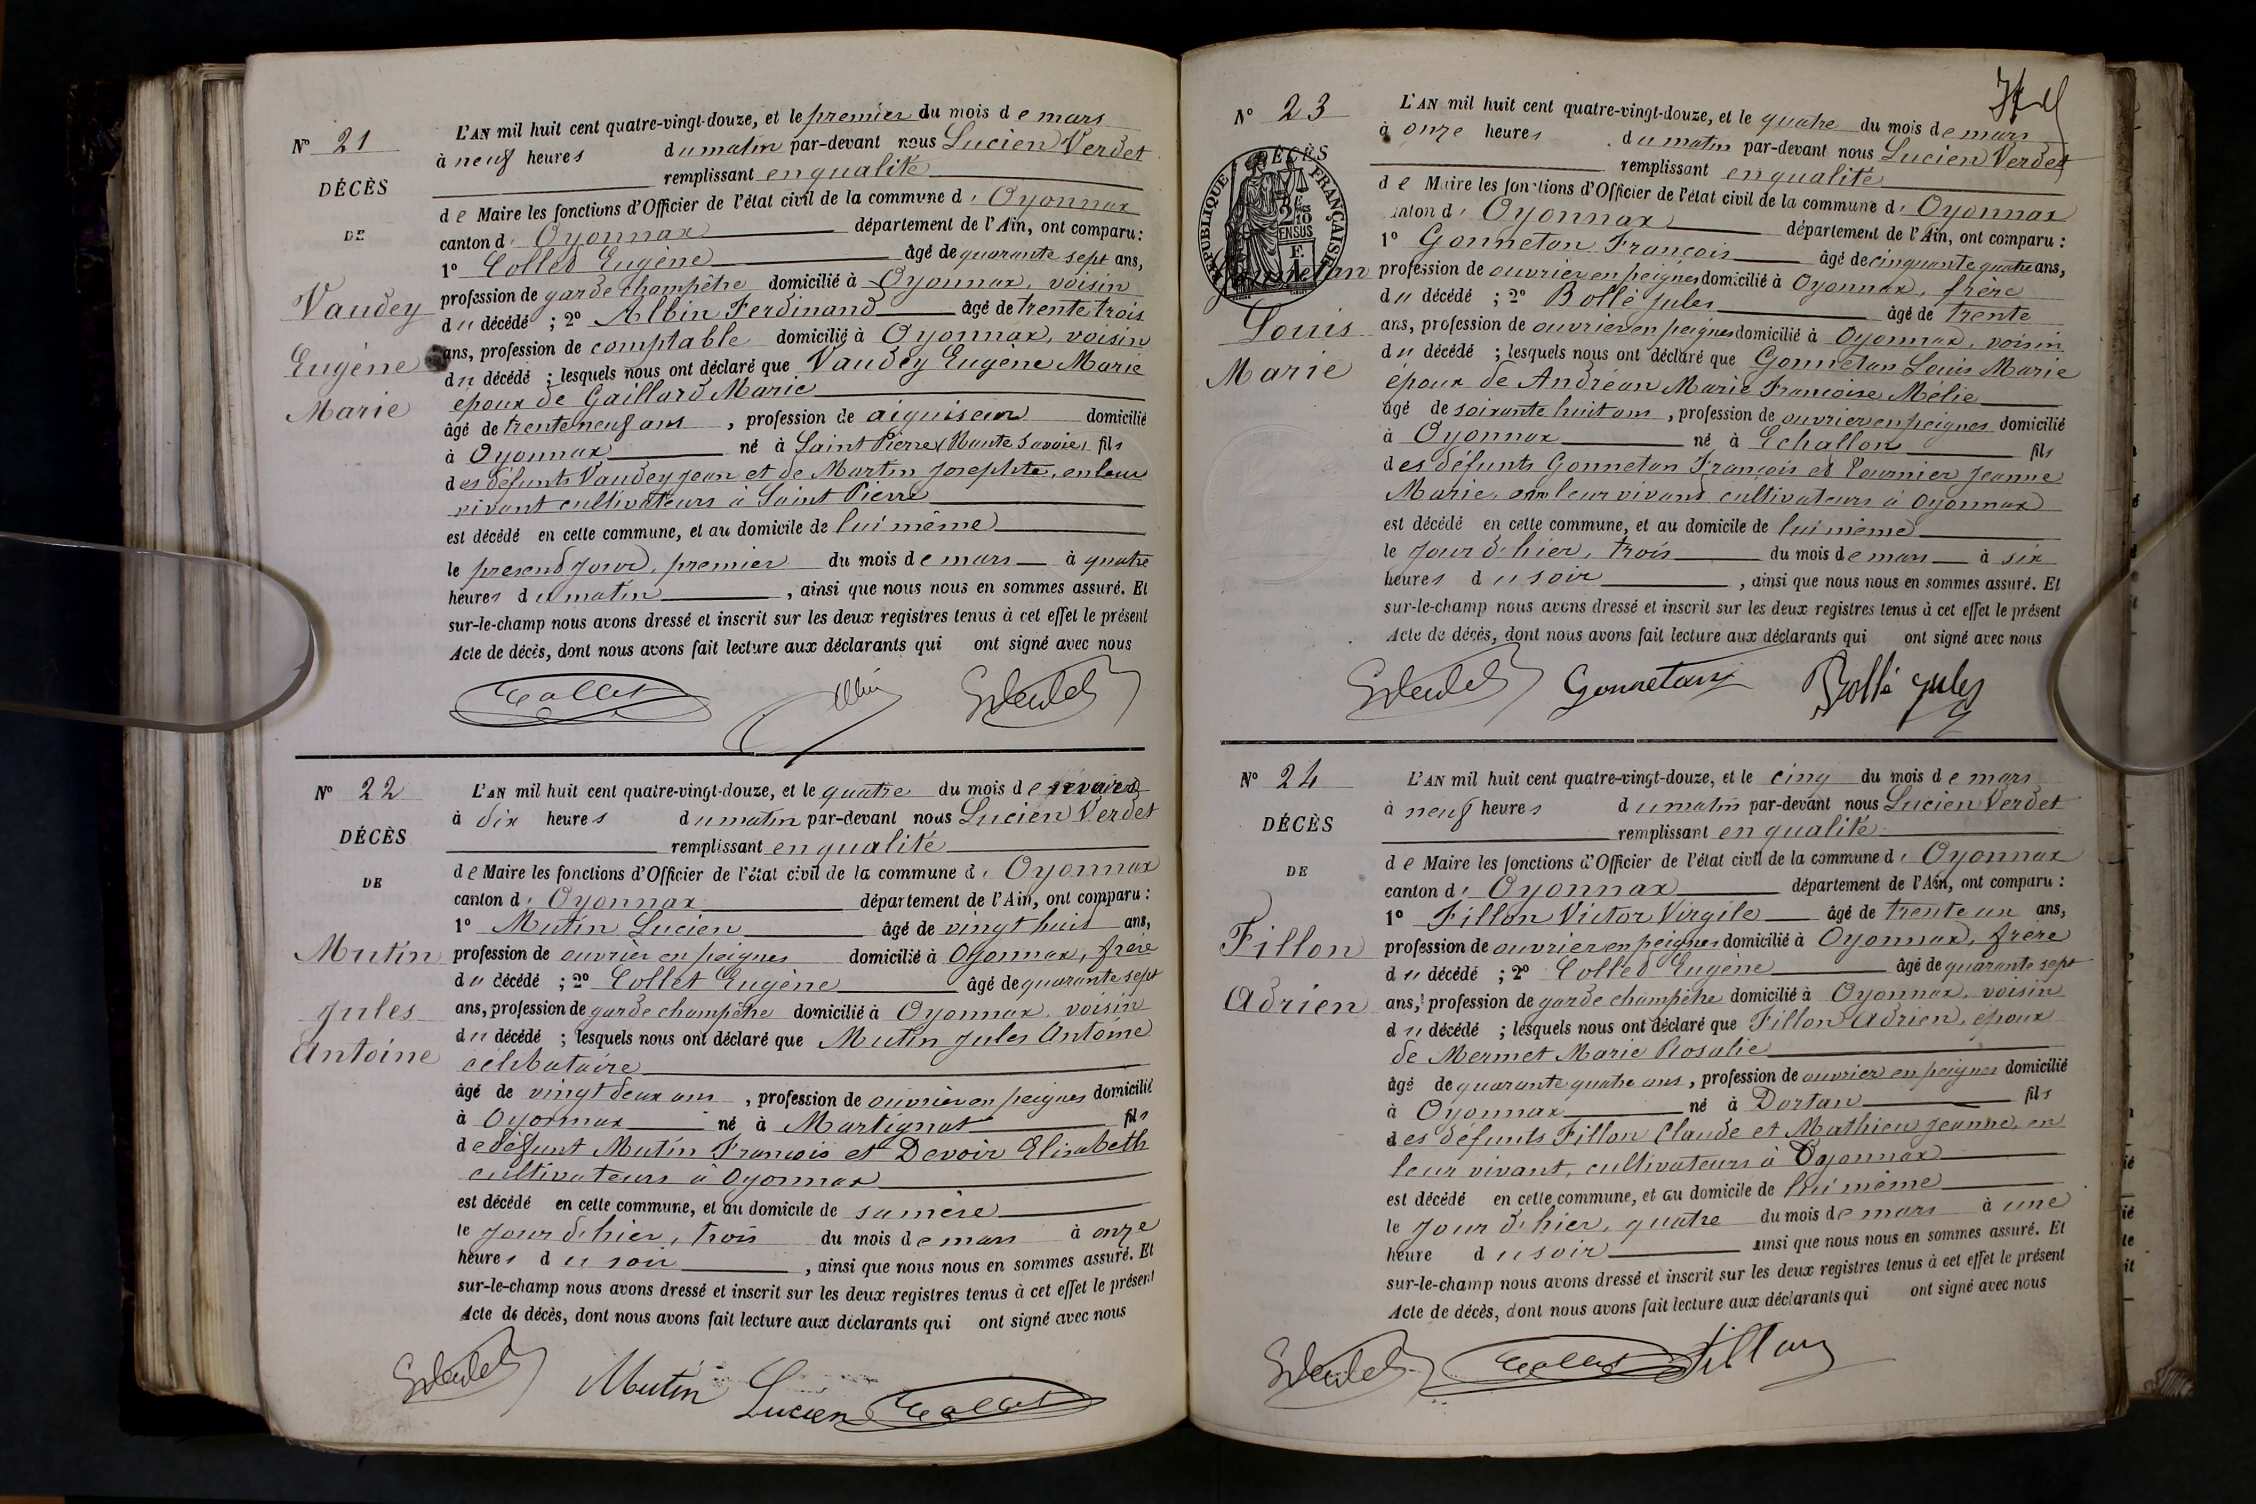 N° 21
DÉCÈS
DE
Vaudey
Eugène
Marie
L'AN mil huit cent quatre-vingt-douze, et le premier du mois de mars
à neuf heures du matin par-devant nous Lucien Verdet
remplissant en qualité
de Maire les fonctions d'Officier de l'état civil de la commune d' Oyonnax
canton d' Oyonnax département de l'Ain, ont comparu :
1° Collet Eugène âgé de quarante sept ans,
profession de garde champêtre domicilié à Oyonnax, voisin
du décédé ; 2° Albin Ferdinand âgé de trente trois
ans, profession de comptable domicilié à Oyonnax, voisin
du décédé ; lesquels nous ont déclaré que Vaudey Eugène Marie
époux de Gaillard Marie
âgé de trente neuf ans , profession de aiguiseur domicilié
à Oyonnax né à Saint Pierre (Haute Savoie) fils
des défunts Vaudey Jean et de Martin Josephte, en leur
vivant cultivateurs à Saint Pierre
est décédé en cette commune, et au domicile de lui même
le présent jour, premier du mois de mars à quatre
heures du matin , ainsi que nous nous en sommes assuré. Et
sur-le-champ nous avons dressé et inscrit sur les deux registres tenus à cet effet le présent
Acte de décès, dont nous avons fait lecture aux déclarants qui ont signé avec nous
Collet Albin Verdet
N° 22
DÉCÈS
DE
Mutin
Jules
Antoine
L'AN mil huit cent quatre-vingt-douze, et le quatre du mois de
à dix heures du matin par-devant nous Lucien Verdet
remplissant en qualité
de Maire les fonctions d'Officier de l'état civil de la commune d' Oyonnax
canton d' Oyonnax département de l'Ain, ont comparu :
1° Mutin Lucien âgé de vingt huit ans,
profession de ouvrier en peignes domicilié à Oyonnax, frère
du décédé ; 2° Collet Eugène âgé de quarante sept
ans, profession de garde champêtre domicilié à Oyonnax, voisin
du décédé ; lesquels nous ont déclaré que Mutin Jules Antoine
célibataire
âgé de vingt deux ans , profession de ouvrier en peignes domicilié
à Oyonnax né à Martignat fils
de défunt Mutin François et Devoir Elisabeth
cultivateurs à Oyonnax
est décédé en cette commune, et au domicile de sa mère
le jour d'hier, trois du mois de mars à onze
heures du soir , ainsi que nous nous en sommes assuré. Et
sur-le-champ nous avons dressé et inscrit sur les deux registres tenus à cet effet le présent
Acte de décès, dont nous avons fait lecture aux déclarants qui ont signé avec nous
Verdet Mutin Lucien Collet
N° 23
DÉCÈS
RÉPUBLIQUE FRANÇAISE
Louis
Marie
L'AN mil huit cent quatre-vingt-douze, et le quatre du mois de mars
à onze heures du matin par-devant nous Lucien Verdet
remplissant en qualité
de Maire les fonctions d'Officier de l'état civil de la commune d' Oyonnax
canton d' Oyonnax département de l'Ain, ont comparu :
1° Gonnetan François âgé de cinquante quatre ans,
profession de ouvrier en peignes domicilié à Oyonnax, frère
du décédé ; 2° Bollé Jules âgé de trente
ans, profession de ouvrier en peignes domicilié à Oyonnax, voisin
du décédé ; lesquels nous ont déclaré que Gonnetan Louis Marie
époux de Andréan Marie Françoise Mélie
âgé de soixante huit ans , profession de ouvrier en peignes domicilié
à Oyonnax né à Echallon fils
des défunts Gonnetan François et Jeanne
Marie, en leur vivant cultivateurs à Oyonnax
est décédé en cette commune, et au domicile de lui même
le jour d'hier, trois du mois de mars à six
heures du soir , ainsi que nous nous en sommes assuré. Et
sur-le-champ nous avons dressé et inscrit sur les deux registres tenus à cet effet le présent
Acte de décès, dont nous avons fait lecture aux déclarants qui ont signé avec nous
Verdet Gonnetan Bollé Jules
N° 24
DÉCÈS
DE
Fillon
Adrien
L'AN mil huit cent quatre-vingt-douze, et le cinq du mois de mars
à neuf heures du matin par-devant nous Lucien Verdet
remplissant en qualité
de Maire les fonctions d'Officier de l'état civil de la commune d' Oyonnax
canton d' Oyonnax département de l'Ain, ont comparu :
1° Fillon Victor Virgile âgé de trente un ans,
profession de ouvrier en peignes domicilié à Oyonnax, frère
du décédé ; 2° Collet Eugène âgé de quarante sept
ans, profession de garde champêtre domicilié à Oyonnax, voisin
du décédé ; lesquels nous ont déclaré que Fillon Adrien, époux
de Mermet Marie Rosalie
âgé de quarante quatre ans, profession de ouvrier en peignes domicilié
à Oyonnax né à Dortan fils
des défunts Fillon Claude et Mathieu Jeanne, en
leur vivant, cultivateurs à Oyonnax
est décédé en cette commune, et au domicile de lui même
le jour d'hier, quatre du mois de mars à une
heure du soir ainsi que nous nous en sommes assuré. Et
sur-le-champ nous avons dressé et inscrit sur les deux registres tenus à cet effet le présent
Acte de décès, dont nous avons fait lecture aux déclarants qui ont signé avec nous
Verdet Collet Fillon